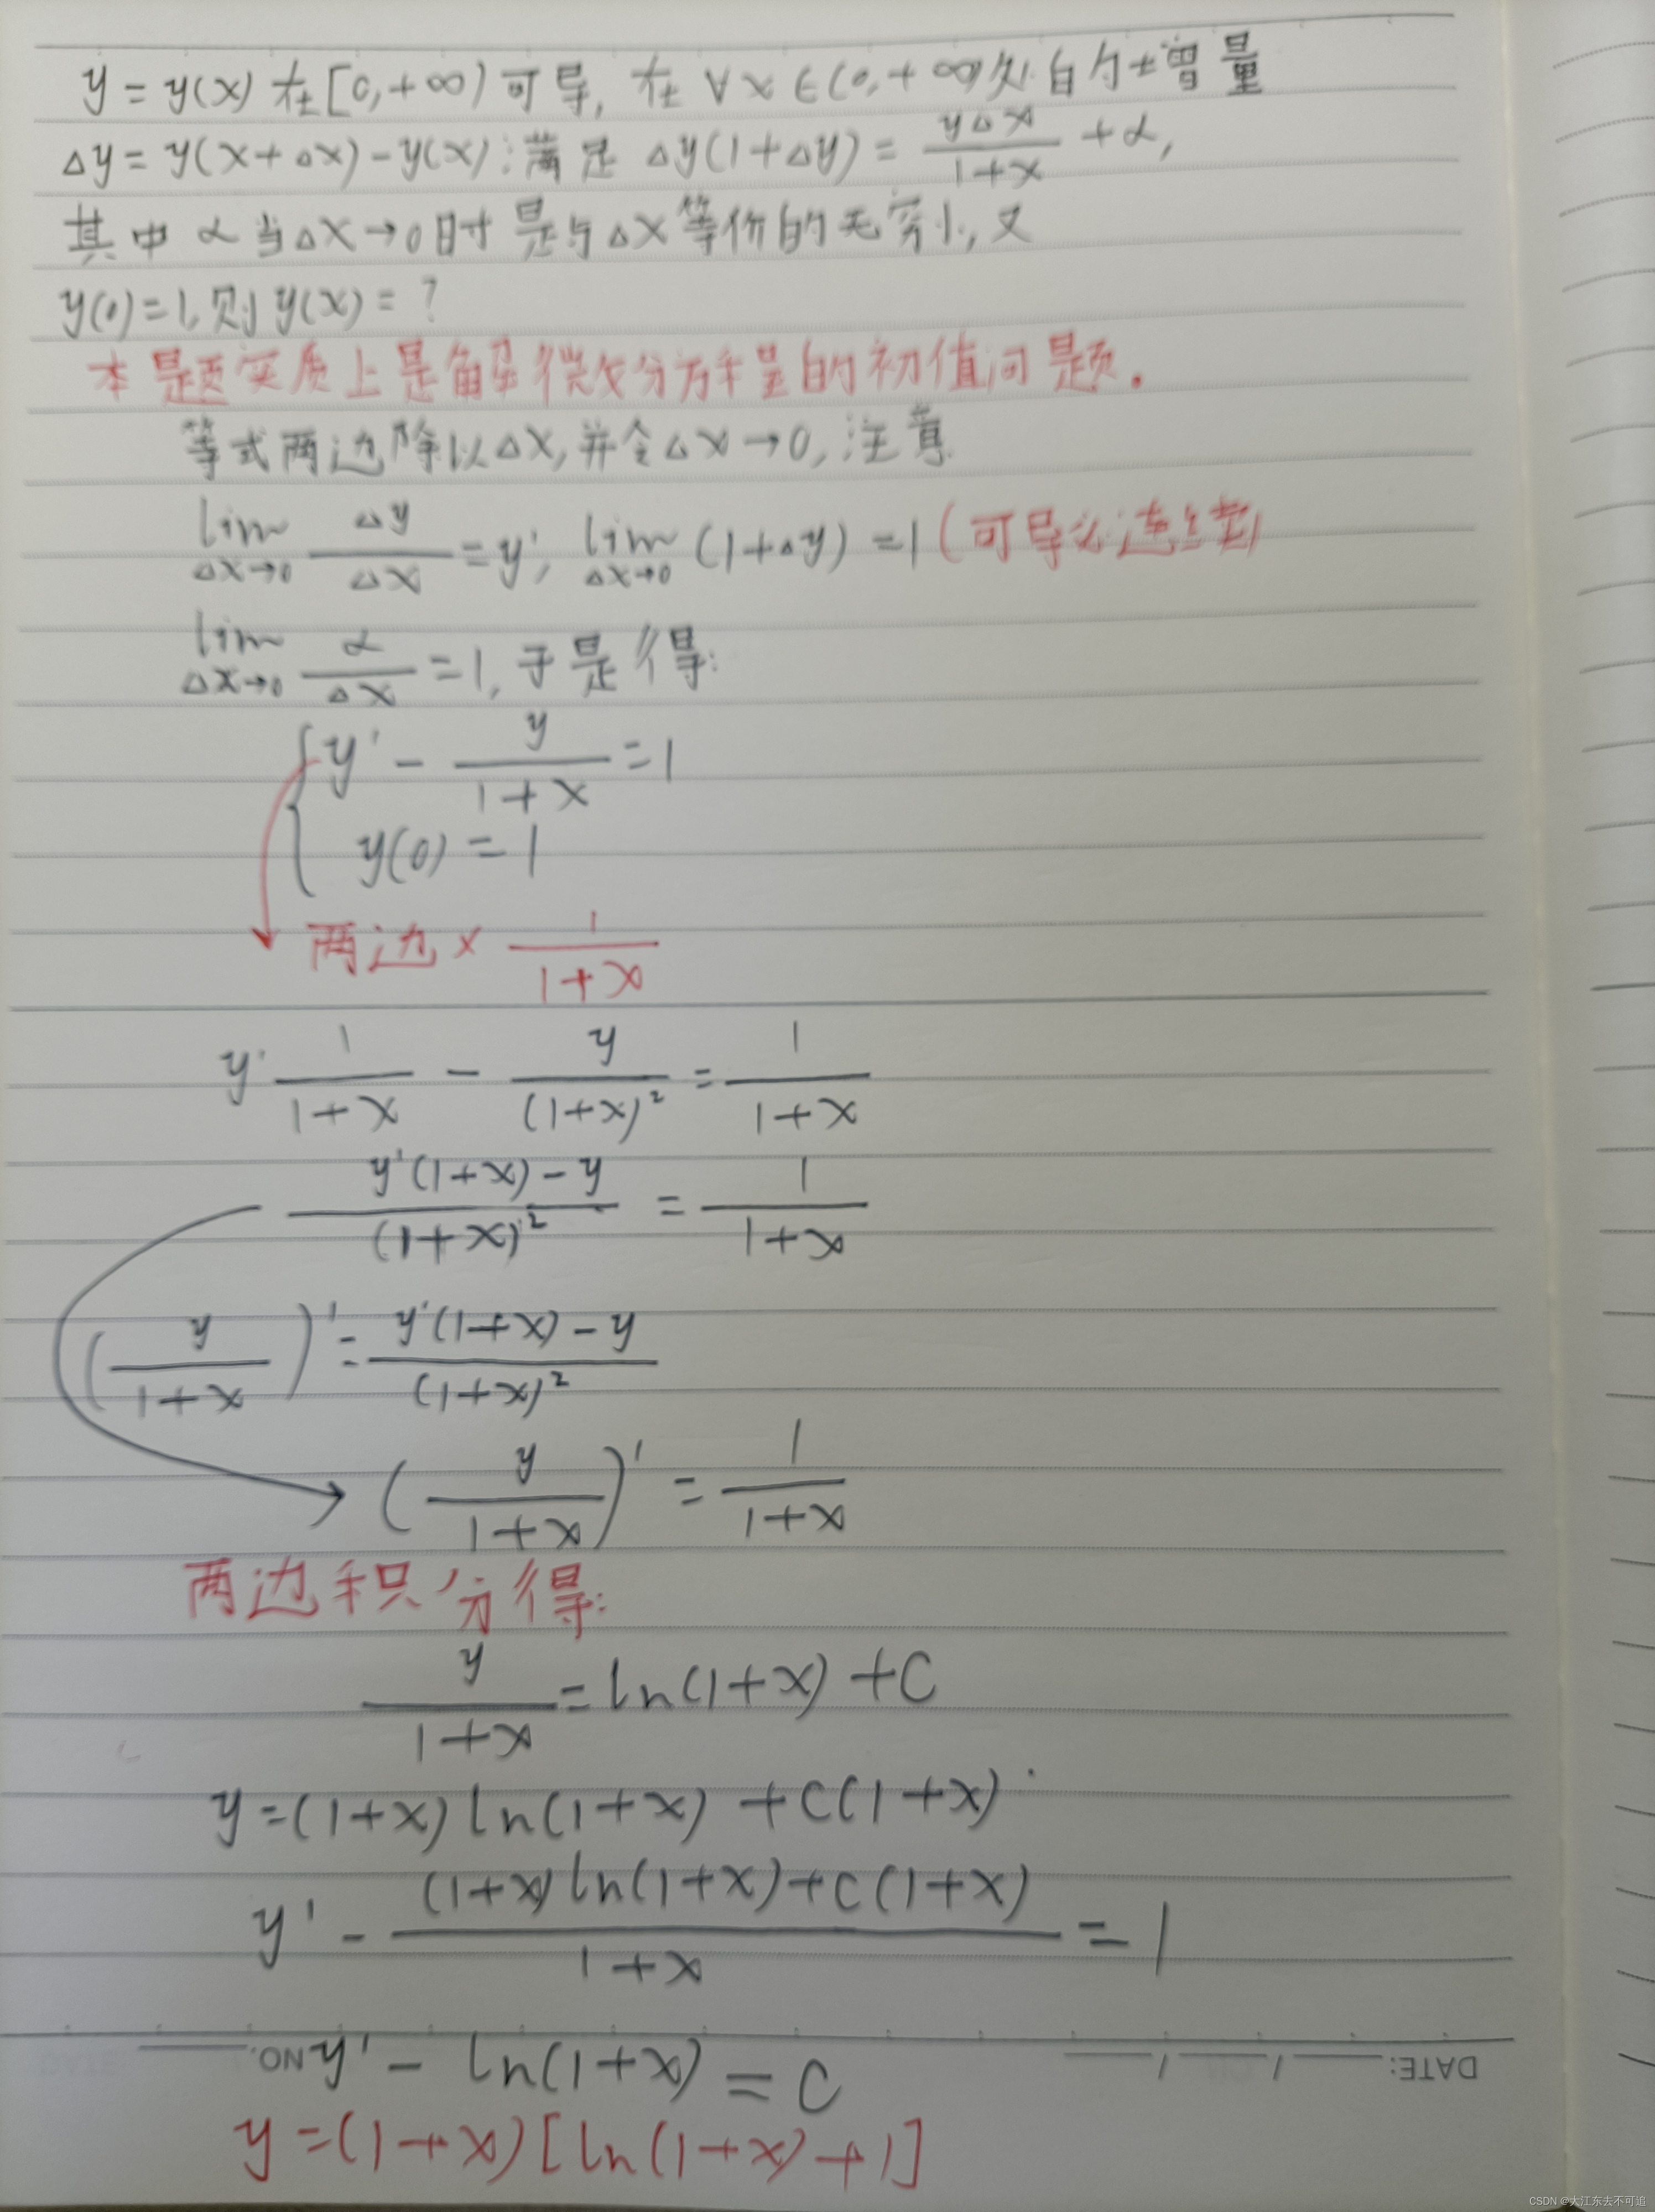 y = y(x) 在[0,+∞)可导, 在 ∀x∈(0,+∞)处的增量
Δy = y(x+Δx) - y(x);满足 Δy(1+Δy) = yΔx/(1+x) + α,
其中 α 当Δx→0时是与Δx等价的无穷小,又
y(0)=1,则y(x)=?
本题实质上是解微分方程的初值问题.
等式两边除以Δx,并令Δx→0,注意
lim Δx→0 Δy/Δx = y'; lim Δx→0 (1+Δy) = 1 (可导必连续)
lim Δx→0 α/Δx = 1,于是得:
{ y' - y/(1+x) = 1
y(0) = 1
两边 × 1/(1+x)
y' 1/(1+x) - y/(1+x)² = 1/(1+x)
(y'(1+x) - y)/(1+x)² = 1/(1+x)
(y/(1+x))' = (y'(1+x) - y)/(1+x)²
(y/(1+x))' = 1/(1+x)
两边积分得:
y/(1+x) = ln(1+x) + C
y = (1+x)ln(1+x) + C(1+x).
y' - ((1+x)ln(1+x) + C(1+x))/(1+x) = 1
y' - ln(1+x) = C
NO.
DATE: / /
y = (1+x)[ln(1+x)+1]
CSDN @大江东去不可追